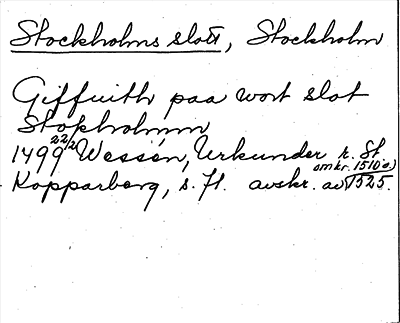 Stockholms slott, Stockholm
Giffuith paa wort slot
Stopholmm
1499 22/2 Wessén, Urkunder r. St.
omkr. 1510(?)
Kopparberg, s. 71. avskr. av 1525.